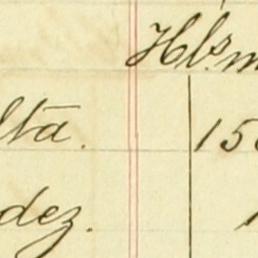 Hls. m
lta. 15
dez. 1